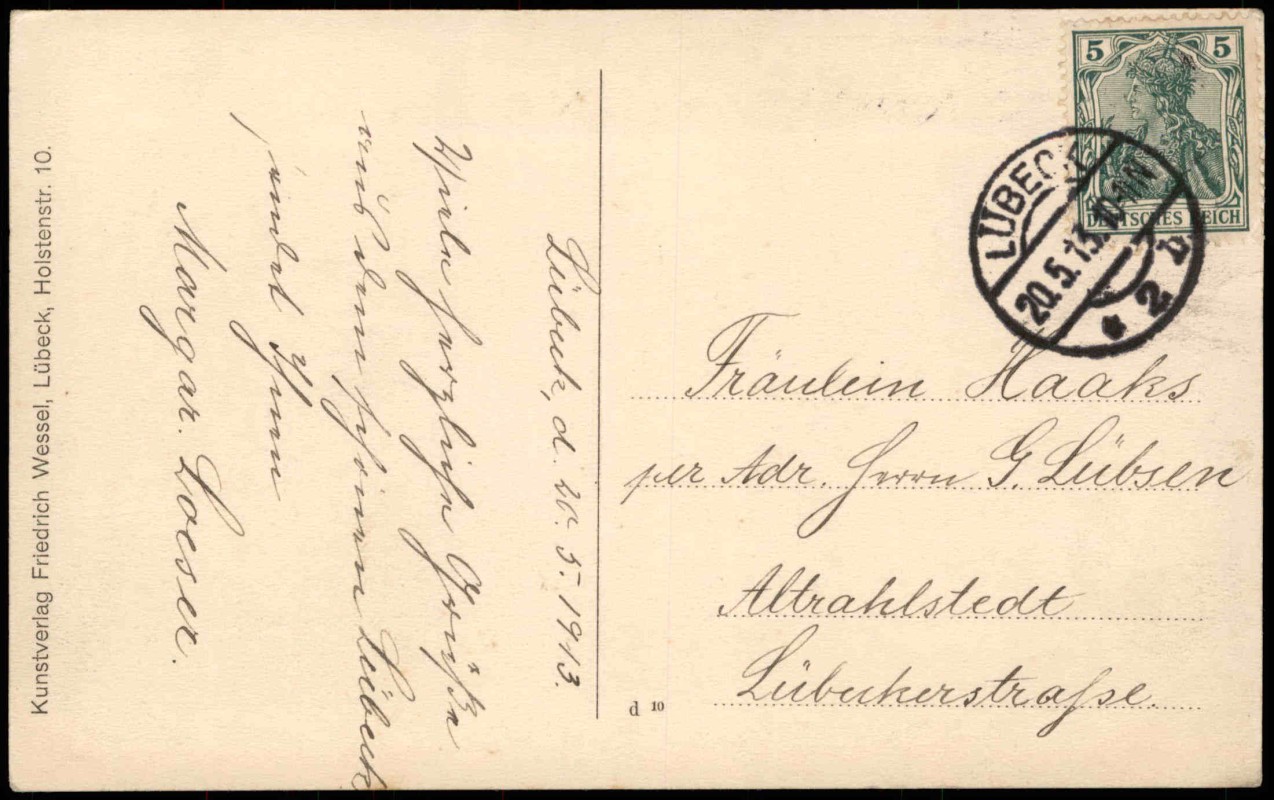 Kunstverlag Friedrich Wessel, Lübeck, Holstenstr. 10.
Lübeck, d. 20. 5. 1913.
Viele herzliche Grüße
aus dem schönen Lübeck
sendet Ihnen
Margar. Loeser.
d 10
5 5
DEUTSCHES REICH
LÜBECK
20.5.13. 10-11N
* 2 b
Fräulein Haaks
per Adr. Herrn G. Lübsen
Altrahlstedt
Lübeckerstraße.